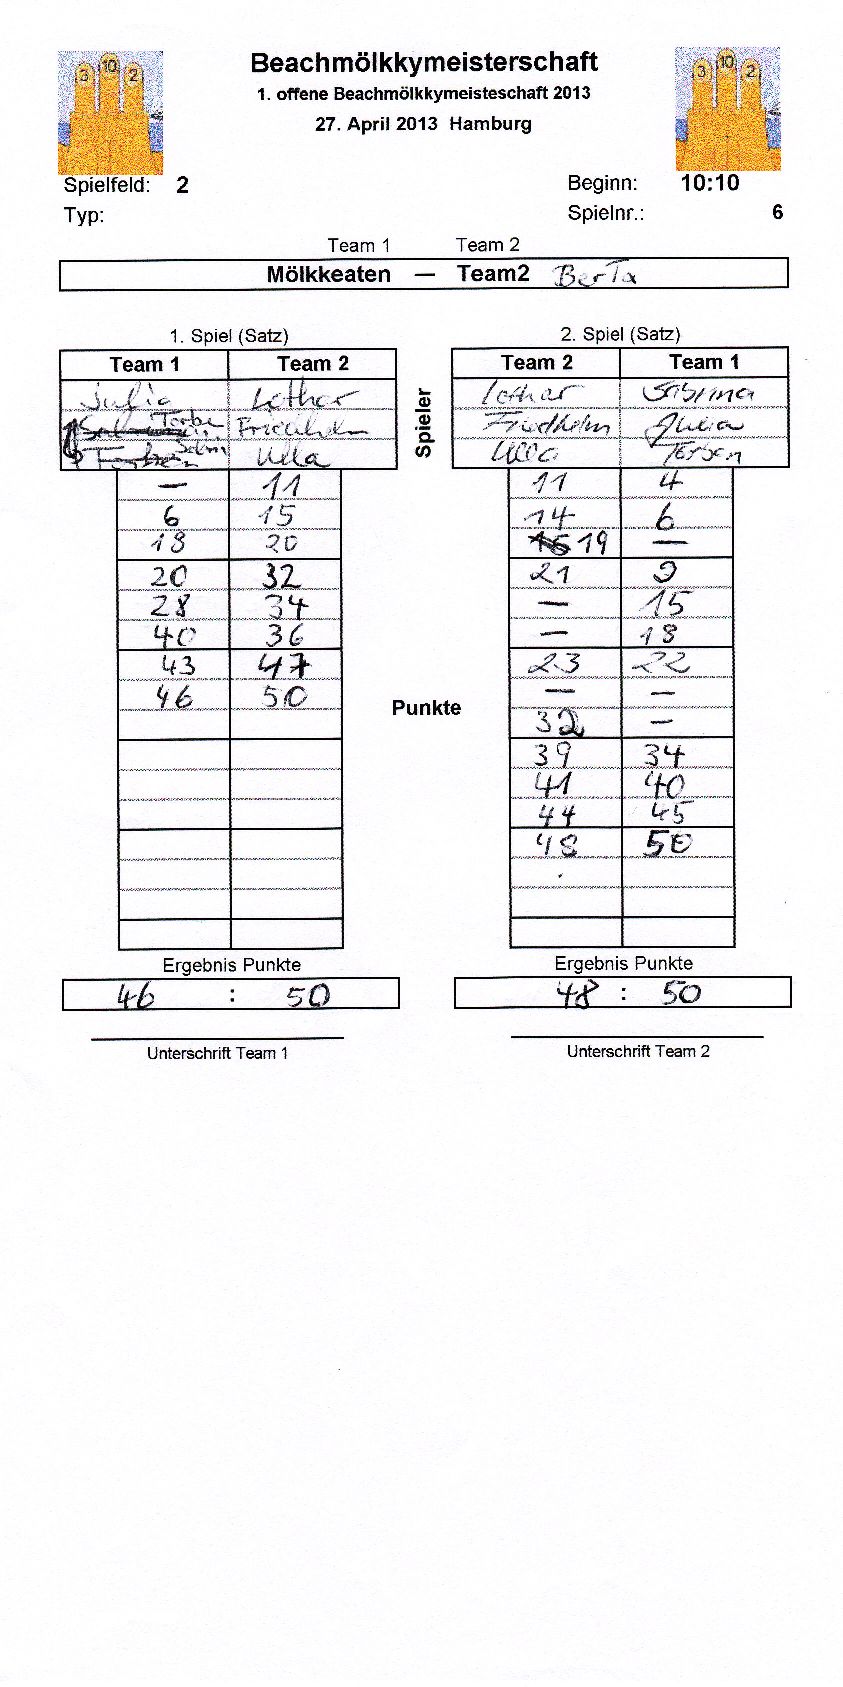 3 10 2 Beachmölkkymeisterschaft 3 10 2
1. offene Beachmölkkymeisteschaft 2013
27. April 2013 Hamburg
Spielfeld: 2 Beginn: 10:10
Typ: Spielnr.: 6
Team 1 Team 2
Mölkkeaten — Team2 BerTa
1. Spiel (Satz) 2. Spiel (Satz)
Team 1 Team 2 Team 2 Team 1
Julia Lothar Lothar Sabrina
Friedhelm Friedhelm Julia
Ulla Ulla Torben
Spieler
— 11 11 4
6 15 14 6
18 20 19 —
20 32 21 9
28 34 — 15
40 36 — 18
43 47 23 22
46 50 — —
Punkte
32 —
39 34
41 40
44 45
48 50
Ergebnis Punkte Ergebnis Punkte
46 : 50 48 : 50
Unterschrift Team 1 Unterschrift Team 2